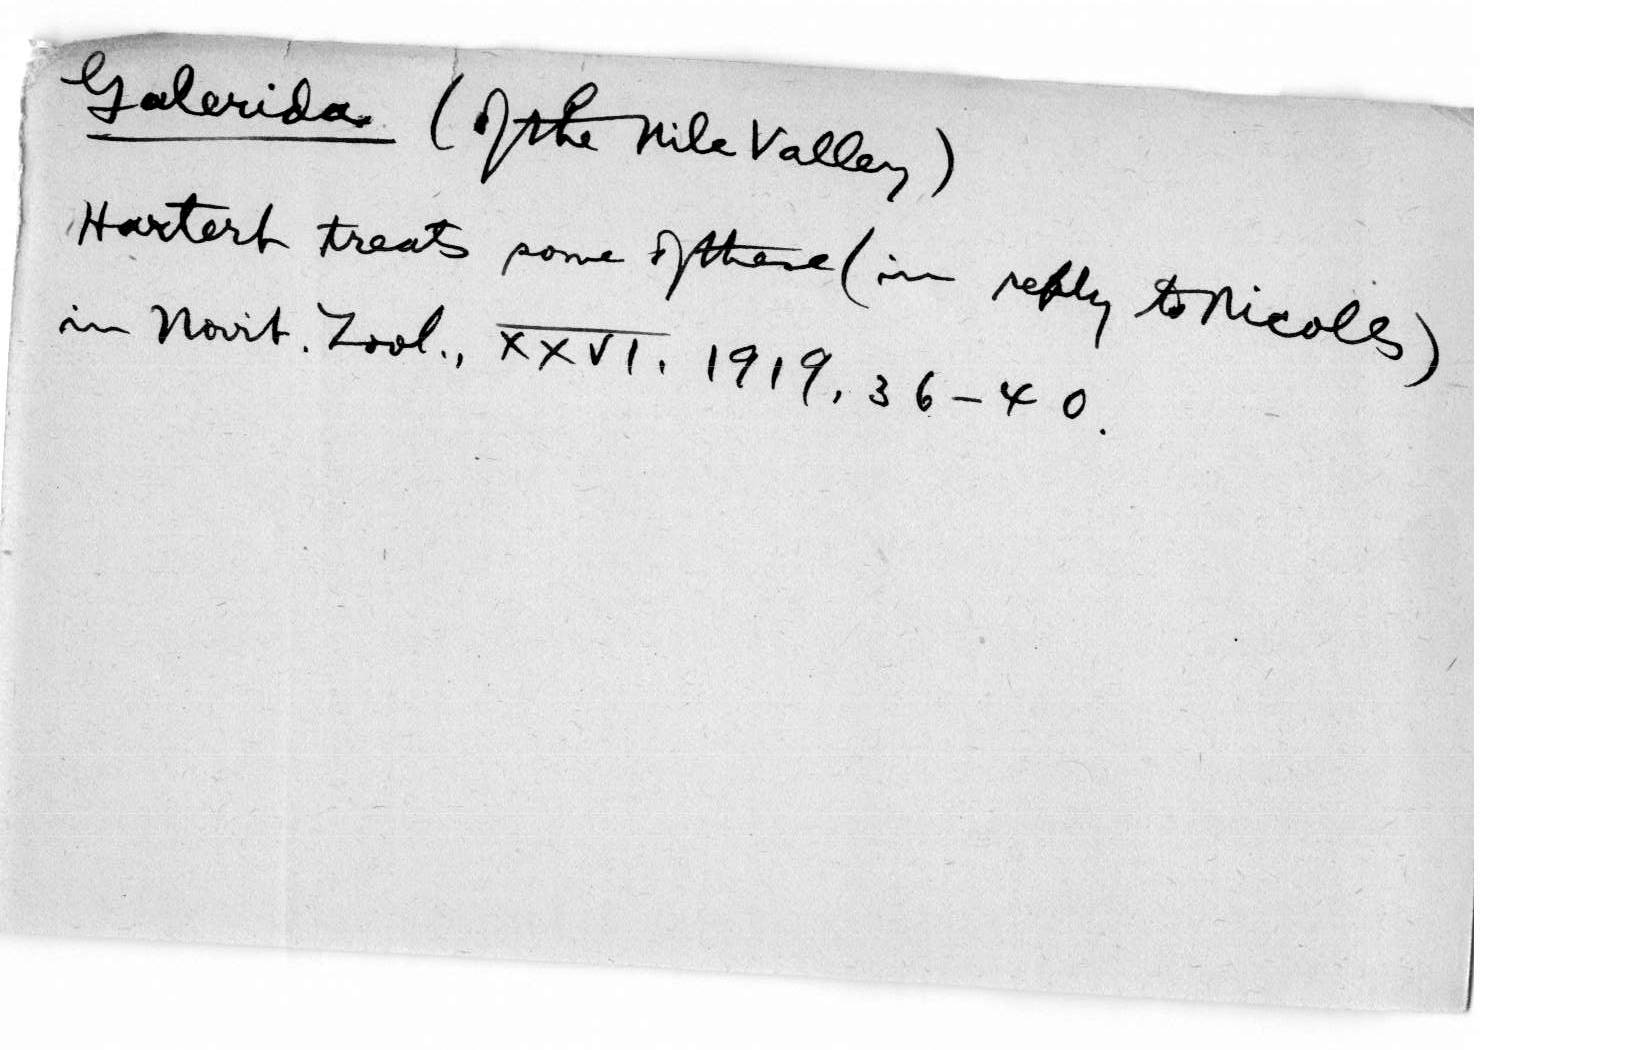 Galerida (of the Nile Valley)
Hartert treats some of these (in reply to Nicolls)
in Novit. Zool., XXVI. 1919, 36-40.